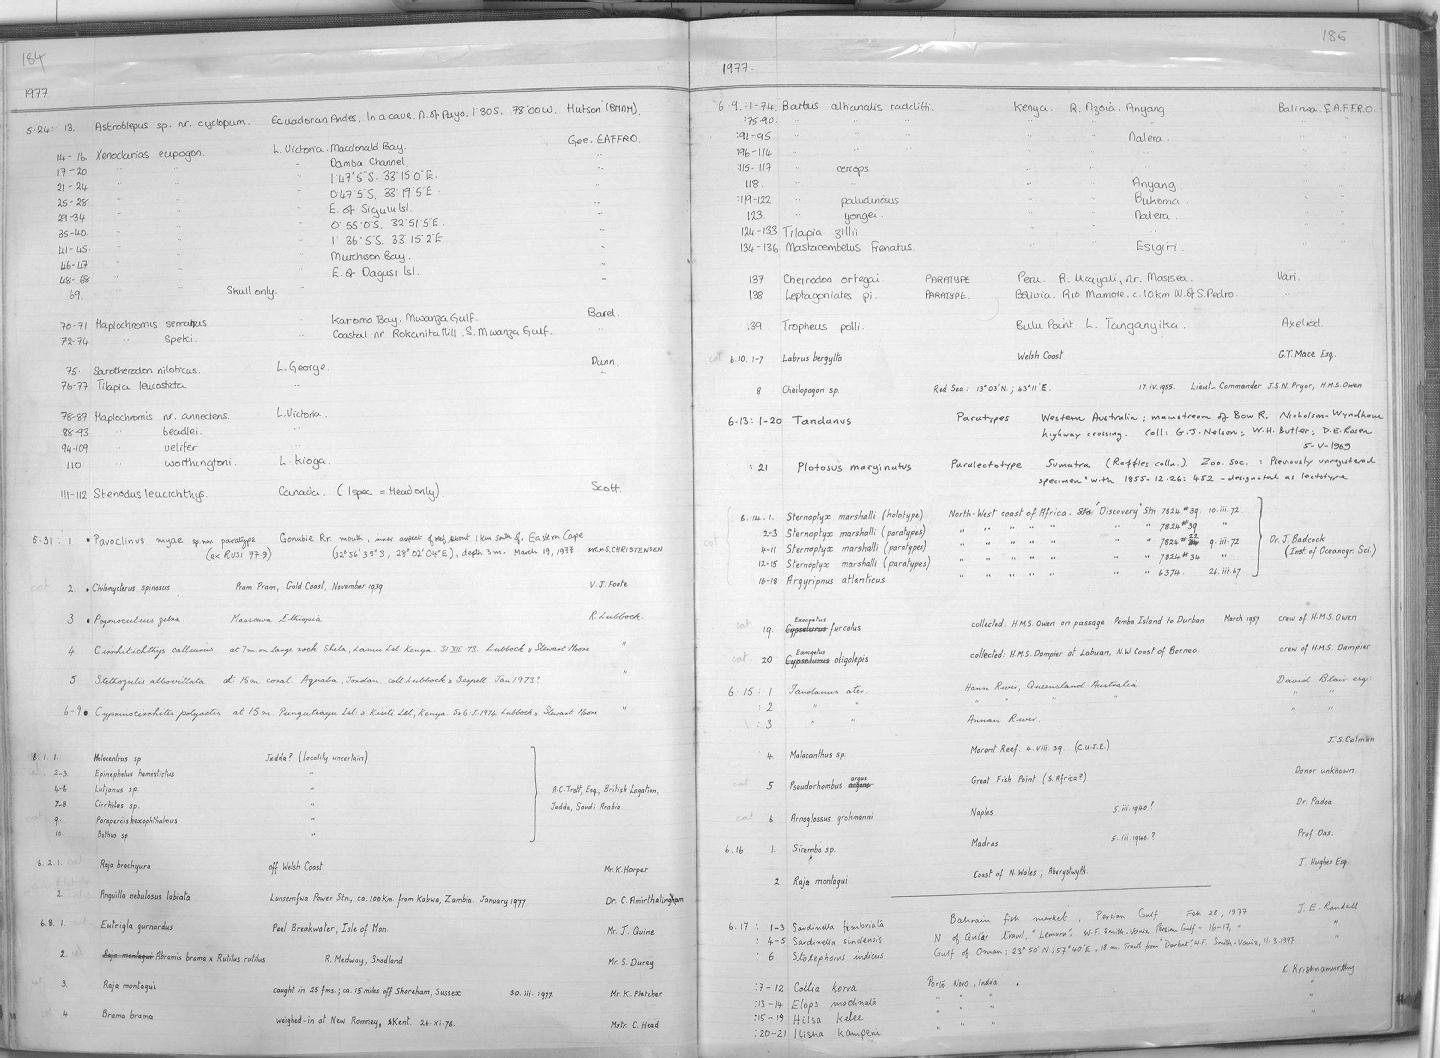 184
1977
5.24: 13. Astroblepus sp. nr. cyclopum. Ecuadoran Andes. In a cave. N. of Puyo. 1°30S. 78°00W. Hutson (BMNH).
14-16. Xenoclarias eupogon. L. Victoria. Macdonald Bay. Gee. EAFFRO.
17-20 " " " Damba Channel. "
21-24 " " " 1°47'5"S. 33°15'0"E. "
25-28 " " " 0°47'5"S. 33°19'5"E "
29-34 " " " E. of Sigulu Isl. "
35-40. " " " 0°55'0"S. 32°51'5"E. "
41-45. " " " 1°36'5"S. 33°15'2"E "
46-47 " " " Murchison Bay. "
48-68 " " " E. of Dagusi Isl. "
69. Skull only. "
70-71 Haplochromis serranus Karomo Bay. Mwanza Gulf. Barel.
72-74 " spekii. Coastal nr Rokanita Mill, S. Mwanza Gulf. "
75. Sarotherodon niloticus. L. George. Dunn.
76-77 Tilapia leucosticta " "
78-87 Haplochromis nr. annectens. L. Victoria.
88-93 " beadlei. "
94-109 " velifer "
110 " worthingtoni. L. Kioga.
111-112 Stenodus leucichthys. Canada. (1 spec = Head only) Scott.
5.31: 1 Pavoclinus myae sp. nov. paratype Gonubie Rr. mouth, inner aspect of reef, about 1 km South of, Eastern Cape
(ex RUSI 979) (32°56'39"S, 28°02'04"E), depth 3m. March 19, 1977 MR. M.S. CHRISTENSEN
2 Chilomycterus spinosus Pram Pram, Gold Coast, November 1939 V.J. Foote
3 Pogonoculius zebra Massawa Ethiopia R. Lubbock.
4 Cirrhitichthys calliurus at 7m. on large rock Shela, Lamu Isl. Kenya. 31 XII 73. Lubbock & Stewart Moore "
5 Stethojulis albovittata at 15m. coral. Aqaba, Jordan. coll Lubbock & Jan 1973? "
6-9 Cyprinocirrhites polyactis at 15m. Isl. & Kisite Isl, Kenya. 5&6.I.1974 Lubbock & Stewart Moore "
6.1. 1. Holocentrus sp Jedda? (locality uncertain)
2-3. Epinephelus hemistictus "
4-6 Lutjanus sp. " A.C. Trott, Esq., British Legation,
7-8 Cirrhites sp. " Jedda, Saudi Arabia.
9. Parapercis hexophthalmus "
10. Bothus sp "
6.2.1. Raja brachyura off Welsh Coast. Mr. K. Harper
2. Anguilla nebulosus labiata Lunsemfwa Power Stn, ca. 100 Km. from Kabwe, Zambia. January 1977 Dr. C. Amirthalingham
6.8. 1. Eutrigla gurnardus Peel Breakwater, Isle of Man. Mr. J. Quine
2. Raja montagui Abramis brama x Rutilus rutilus R. Medway, Snodland Mr. S. Durey
3. Raja montagui caught in 25 fms; ca. 15 miles off Shoreham, Sussex 30. iii. 1977. Mr. K. Fletcher
4 Brama brama weighed-in at New Romney, Kent. 26.xi.76. Mstr. C. Head
185
1977.
6.9.:1-74. Barbus altianalis radcliffi. Kenya. R. Nzoia. Anyang Balirwa. E.A.F.F.R.O.
:75-90. " " " " " " "
:91-95 " " " " " Nalera. "
:96-114 " " " " " " "
:115-117 " cercops " " " "
118. " " " " Anyang "
:119-122 " paludinosus " " Buhoma "
123. " yongei. " " Nalera. "
124-133 Tilapia zillii " " " "
134-136. Mastacembelus frenatus. " " Esigiri. "
137 Cheirodon ortegai PARATYPE Peru. R. Ucayali, nr. Masisea. Vari.
138 Leptagoniates pi. PARATYPE. Bolivia. Rio Mamore. c. 10km W. of S. Pedro. "
:39. Tropheus polli. Bulu Point L. Tanganyika. Axelrod.
cat 6.10. 1-7 Labrus bergylta Welsh Coast G.T. Mace Esq.
8 Cheilopogon sp. Red Sea: 13°03'N.; 43°11'E. 17. iv. 1955. Lieut- Commander J.S.N. Pryor, H.M.S. Owen
6.13: 1-20 Tandanus Paratypes Western Australia; mainstream of Bow R. Nicholson-Wyndham
highway crossing. Coll: G.J. Nelson; W.H. Butler; D.E. Rosen
5-V-1969
:21 Plotosus marginatus Paralectotype Sumatra (Raffles colln.). Zoo. Soc. : Previously unregistered
specimen with 1855-12.26: 452 - designated as lectotype
6.14. 1. Sternoptyx marshalli (holotype) North-West coast of Africa. 'Discovery' Stn 7824 #39. 10.iii.72.
2-3 Sternoptyx marshalli (paratypes) " " " " " " 7824 #39 "
4-11 Sternoptyx marshalli (paratypes) " " " " " " 7824 #22 9.iii.72 Dr. J. Badcock
12-15 Sternoptyx marshalli (paratypes) " " " " " " 7824 #34 (Inst. of Oceanogr. Sci.)
16-18 Argyripnus atlanticus " " " " " " 6374. 26.iii.67
cat 19. Exocoetus Cypselurus furcatus collected: H.M.S. Owen on passage Pemba Island to Durban March 1957 crew of H.M.S. Owen
cat 20 Exocoetus Cypselurus oligolepis collected: H.M.S. Dampier at Labuan, N.W Coast of Borneo. crew of H.M.S. Dampier
6.15: 1 Tandanus ater. Hann River, Queensland Australia David Blair esq.
: 2 " " " " " " "
: 3 " " Annan River. " "
4. Malacanthus sp. Morant Reef. 4. viii. 39. (C.U.J.E.) J.S. Colman
cat 5 Pseudorhombus argus Great Fish Point (S. Africa?) Donor unknown.
cat 6 Arnoglossus grohmanni Naples 5. iii. 1940? Dr. Padoa
6.16 1. Sirembo sp. Madras 5. iii. 1940.? Prof Das.
2 Raja montagui Coast of N. Wales, Aberystwyth. J. Hughes Esq.
6.17: 1-3 Sardinella fimbriata Bahrain fish market, Persian Gulf Feb 28, 1977 J.E. Randall
: 4-5 Sardinella sindensis N of Qatar trawl, "Lemuru". W.F. Smith-Vaniz Persian Gulf - 16-17, " "
: 6 Stolephorus indicus Gulf of Oman; 23°50'N; 57°40'E, 18 m. Trawl from "Darbat". W.F. Smith-Vaniz, 11.3.1977 "
:7-12 Coilia korua Porto Novo, India. K Krishnamurthy
:13-14 Elops machnata " " " "
:15-19 Hilsa kelee " " " "
:20-21 Ilisha kampeni " " " "